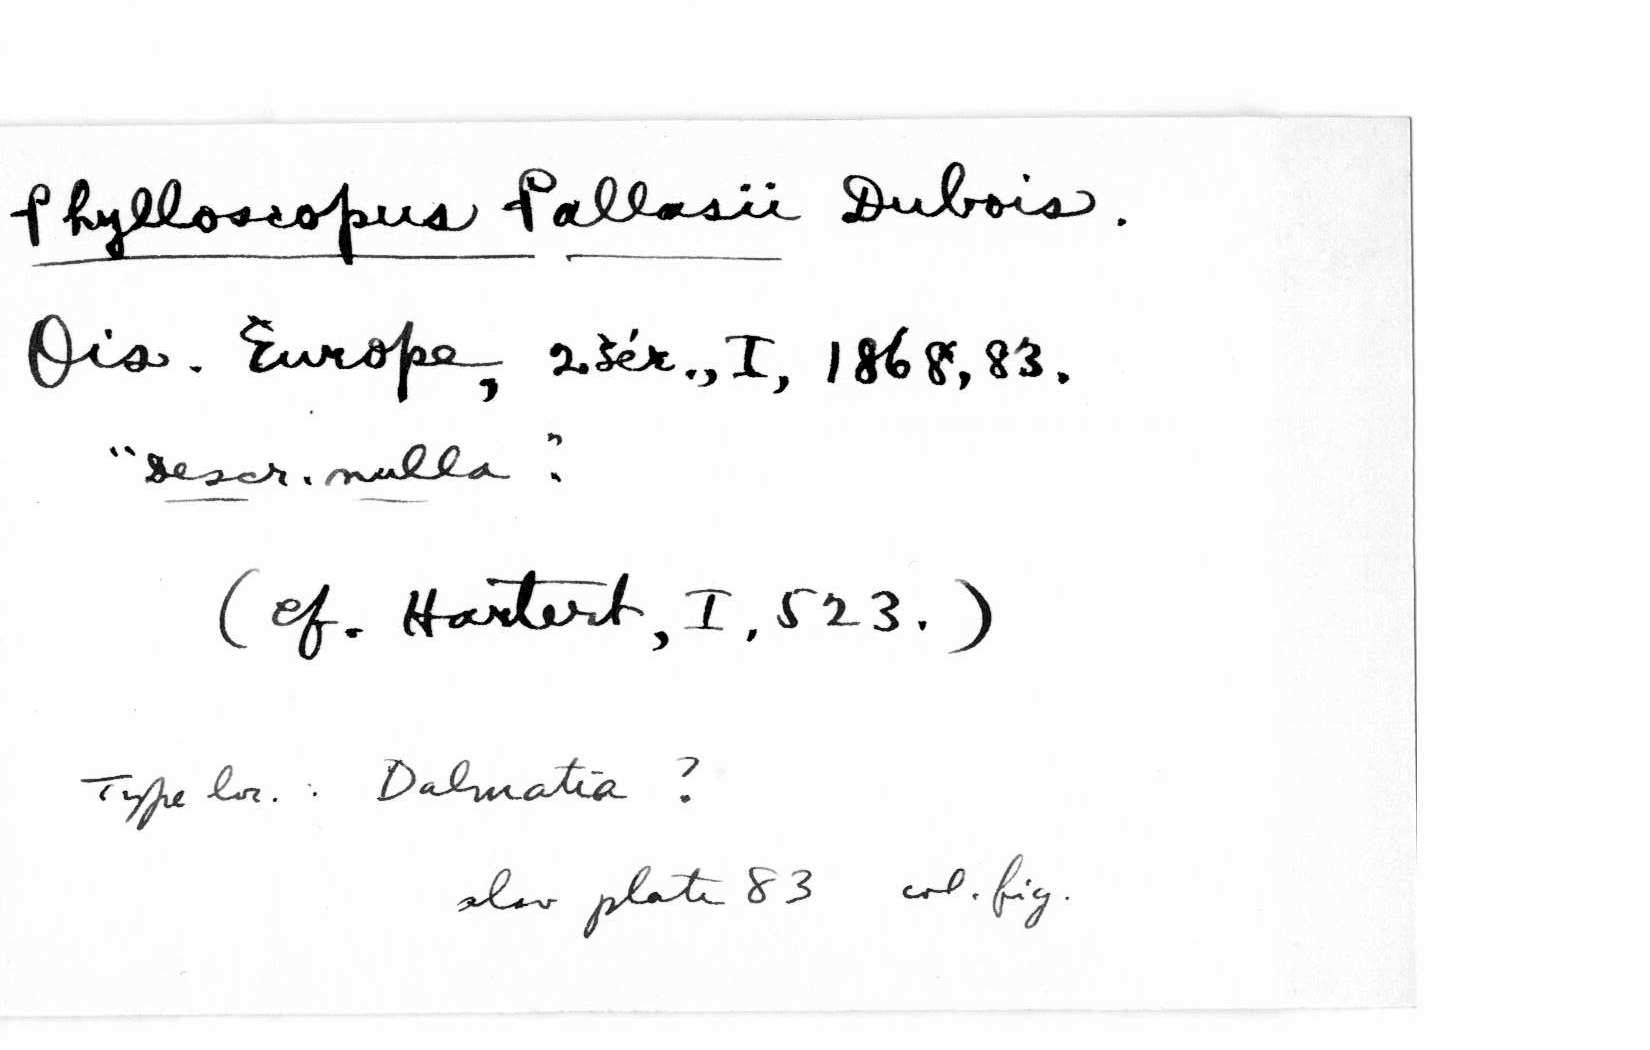 Phylloscopus Pallasii Dubois.
Ois. Europe, 2.sér., I, 1868, 83.
"descr. nulla"?
(cf. Hartert, I, 523.)
Type loc. : Dalmatia ?
also plate 83 col. fig.